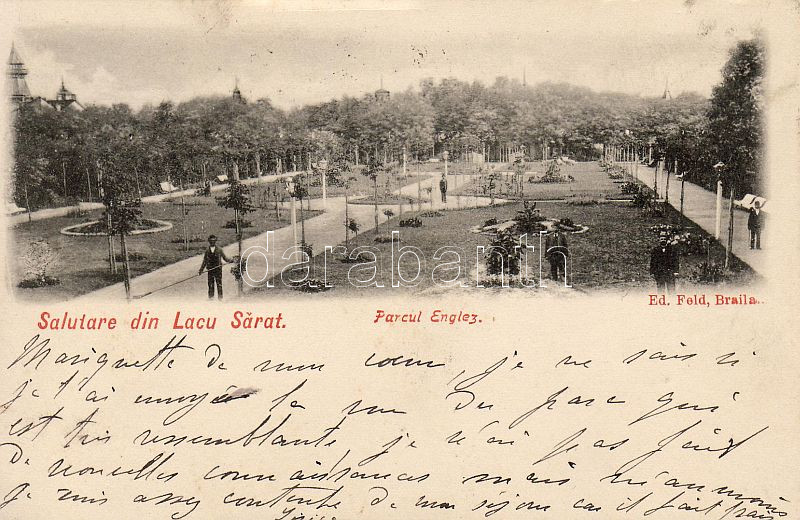 darabanth
Ed. Feld, Braila.
Salutare din Lacu Sărat.
Parcul Englez.
Mariquette de mon cœur, je ne sais si
je t'ai envoyée la vue du parc qui
est très ressemblante, je n'ai pas fait
de nouvelles connaissances mais néanmoins
je suis assez contente de mon séjour car il fait frais